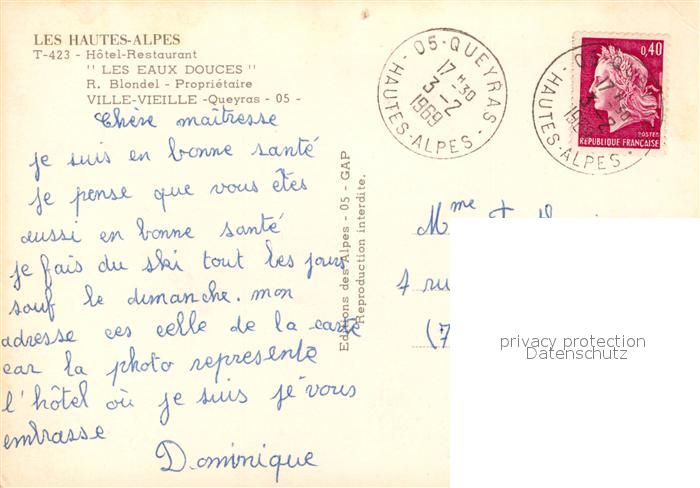 LES HAUTES-ALPES
T-423 - Hôtel-Restaurant
" LES EAUX DOUCES "
R. Blondel - Propriétaire
VILLE-VIEILLE -Queyras - 05 -
Chère maîtresse
je suis en bonne santé
je pense que vous êtes
aussi en bonne santé
je fais du ski tout les jours
souf le dimanche. mon
adresse ces celle de la carte
car la photo represente
l'hôtel où je suis je vous
embrasse
Dominique
Editions des Alpes - 05 - GAP
Reproduction interdite.
05-QUEYRAS
17 H 30
3-2
1969
HAUTES-ALPES
0,40
POSTES
RÉPUBLIQUE FRANÇAISE
05-
17 H 30
3-2
HAUTES-ALPES
Mme
7 ru
(7
privacy protection
Datenschutz